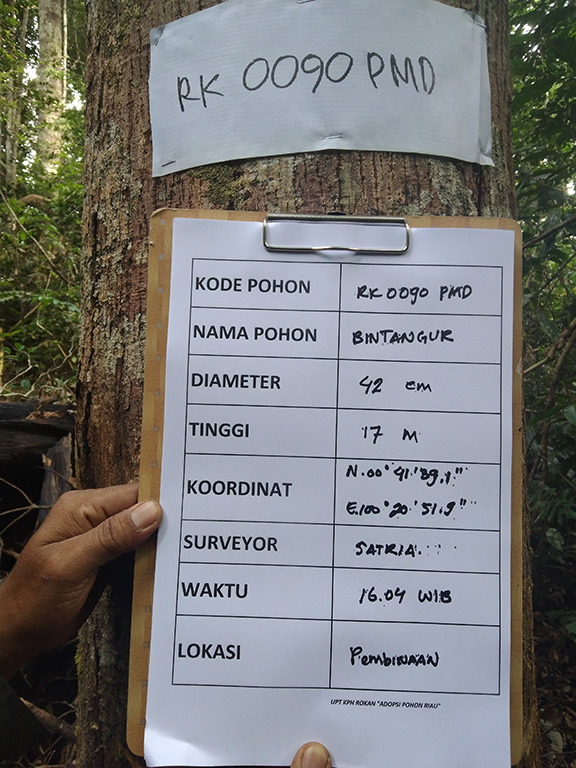 RK 0090 PMD
KODE POHON RK 0090 PMD
NAMA POHON BINTANGUR
DIAMETER 42 cm
TINGGI 17 M
KOORDINAT N.00° 41.'
E.100° 20.' 51.9"
SURVEYOR SATRIA.
WAKTU 16.04 WIB
LOKASI Pembinaan
UPT KPH ROKAN "ADOPSI POHON RIAU"